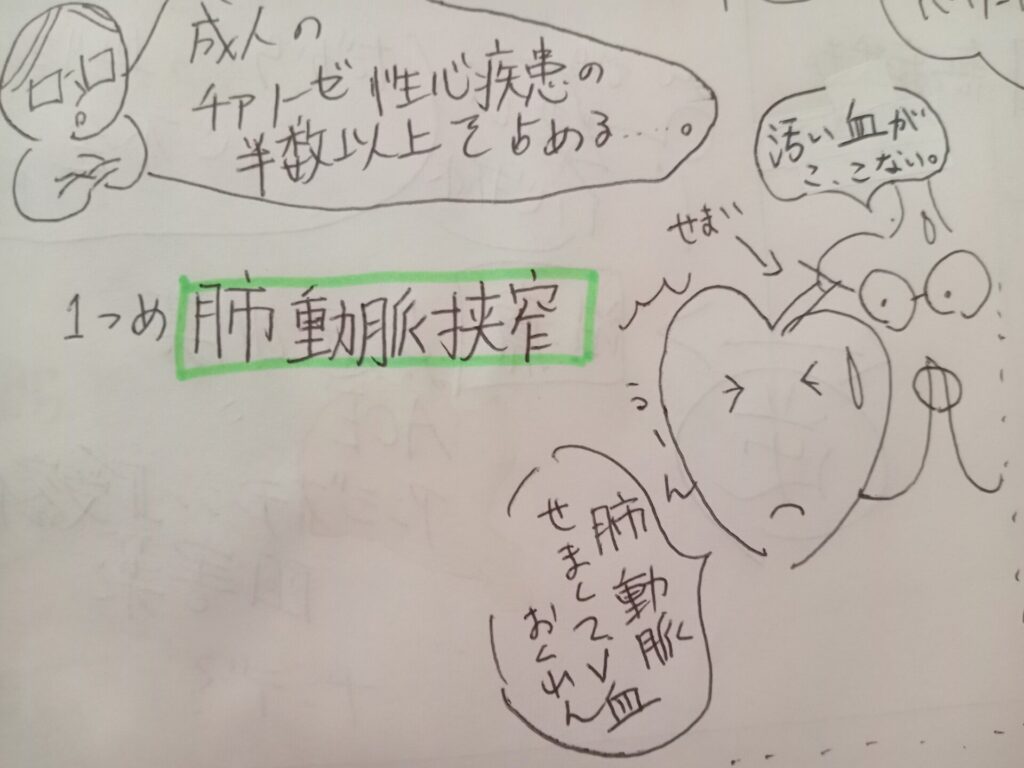 成人の
チアノーゼ性心疾患の
半数以上を占める……。
汚い血が
こ、こない。
せまい
1つめ 肺動脈狭窄
うーん
肺動脈
せまくて血
おくれん